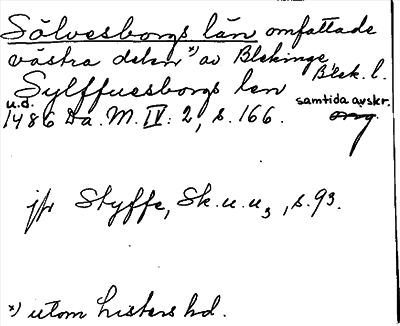 Sölvesborgs län omfattade
västra delen *) av Blekinge
Blek. l.
Sylffuesborgs len
u.d. samtida avskr.
1486 Da. M. IV: 2, s. 166. orig.
jfr Styffe, Sk. u. u3, s. 93.
*) utom Listers hd.